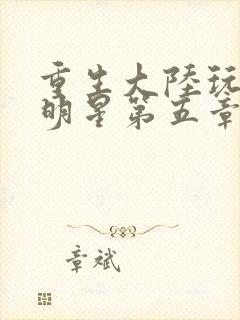 重生大陸玩
明星第五章
章斌